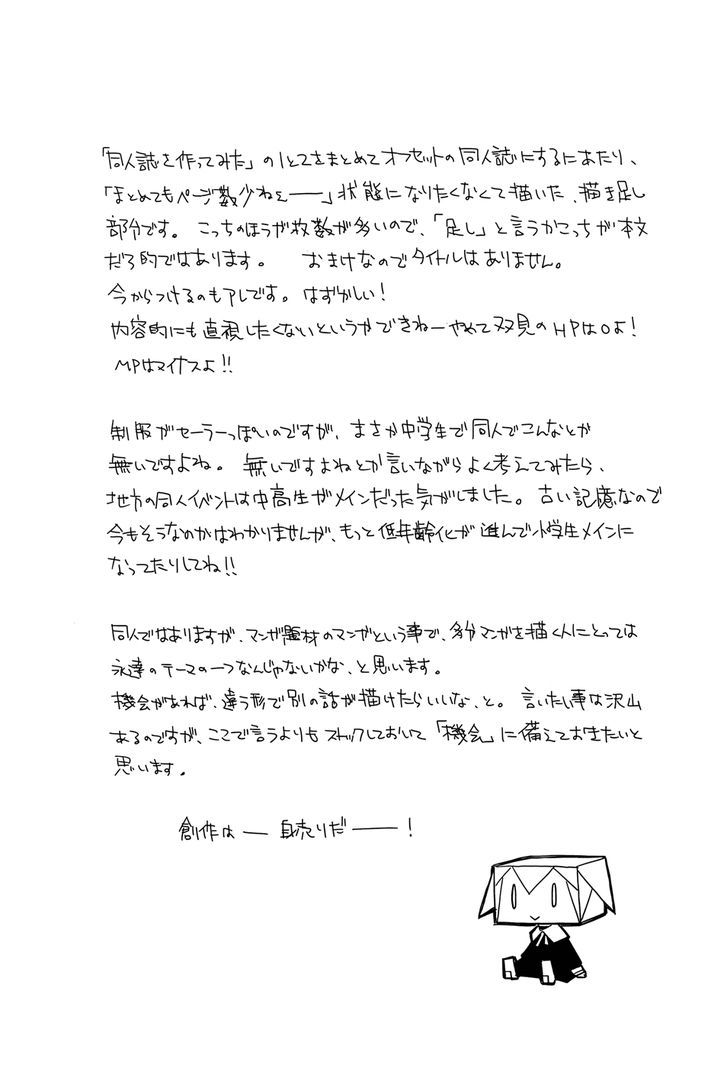 「同人誌を作ってみた」の1と2をまとめてオフセットの同人誌にするにあたり、
「まとめてもページ数少ねぇ――」状態になりたくなくて描いた、描き足し
部分です。 こっちのほうが枚数が多いので、「足し」と言うかこっちが本文
だろ的ではあります。 おまけなのでタイトルはありません。
今からつけるのもアレです。はずかしい!
内容的にも直視したくないというかできねーやめて双見のHPは0よ!
MPはマイナスよ!!
制服がセーラーっぽいのですが、まさか中学生で同人でこんなとか
無いですよね。 無いですよねとか言いながらよく考えてみたら、
地方の同人イベントは中高生がメインだった気がしました。古い記憶なので
今もそうなのかはわかりませんが、もっと低年齢化が進んで小学生メインに
なってたりしてね!!
同人ではありますが、マンガ題材のマンガという事で、多分マンガを描く人にとっては
永遠のテーマの一つなんじゃないかな、と思います。
機会があれば、違う形で別の話が描けたらいいな、と。 言いたい事は沢山
あるのですが、ここで言うよりもストックしておいて「機会」に備えておきたいと
思います。
創作は― 身売りだ――!